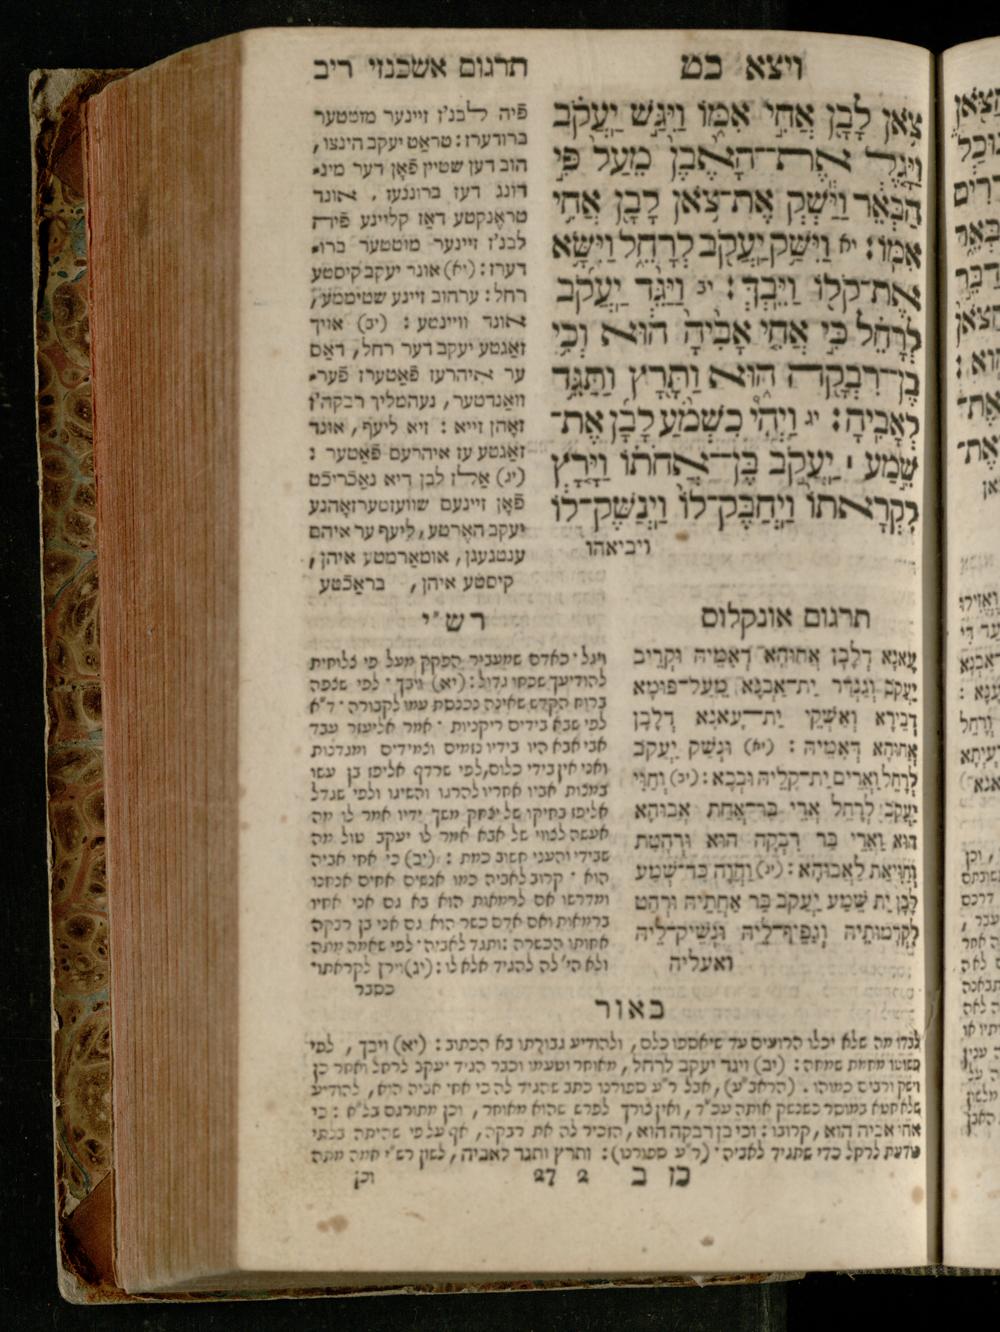 ויצא כט
תרגום אשכנזי ריב
צֹאן לָבָן אֲחִי אִמּוֹ וַיִּגַּשׁ יַעֲקֹב
וַיָּגֶל אֶת־הָאֶבֶן מֵעַל פִּי
הַבְּאֵר וַיַּשְׁקְ אֶת־צֹאן לָבָן אֲחִי
אִמּוֹ׃ יא וַיִּשַּׁק יַעֲקֹב לְרָחֵל וַיִּשָּׂא
אֶת־קֹלוֹ וַיֵּבְךְּ׃ יב וַיַּגֵּד יַעֲקֹב
לְרָחֵל כִּי אֲחִי אָבִיהָ הוּא וְכִי
בֶן־רִבְקָה הוּא וַתָּרָץ וַתַּגֵּד
לְאָבִיהָ׃ יג וַיְהִי כִשְׁמֹעַ לָבָן אֶת־
שֵׁמַע ׀ יַעֲקֹב בֶּן־אֲחֹתוֹ וַיָּרָץ
לִקְרָאתוֹ וַיְחַבֶּק־לוֹ וַיְנַשֶּׁק־לוֹ
ויביאהו
פֿיה לבנ'ז זיינער מוטטער
ברודערז: טראַט יעקב הינצו,
הוב דען שטיין פֿאָן דער מינ־
דונג דעז ברוננעז, אונד
טרענקטע דאַז קליינע פֿיה
לבנ'ז זיינער מוטטער ברו־
דערז: (יא) אונד יעקב קיסטע
רחל: ערהוב זיינע שטיממע,
אונד וויינטע: (יב) אויך
זאַגטע יעקב דער רחל, דאַס
ער איהרעז פֿאַטערז פֿער־
וואַנדטער, נעהמליך רבקה'ז
זאָהן זייא: זיא ליעף, אונד
זאַגטע עז איהרעם פֿאַטער:
(יג) אַלז לבן דיא נאַכֿריכֿט
פֿאָן זיינעם שוועזטערזאָהנע
יעקב האָרטע, ליעף ער איהם
ענטגעגן, אומאַרמטע איהן,
קיסטע איהן, בראַכֿטע
תרגום אונקלוס
עָאנָא דְלָבָן אֲחוּהָא דְאִמֵּיהּ וּקְרֵיב
יַעֲקֹב וְגַנְדַּר יָת־אַבְנָא מֵעַל־פּוּמָא
דְבֵירָא וְאַשְׁקֵי יָת־עָאנָא דְלָבָן
אֲחוּהָא דְאִמֵּיהּ: (יא) וּנְשַׁק יַעֲקֹב
לְרָחֵל וַאֲרֵים יָת־קָלֵיהּ וּבְכָא: (יב) וְחַוִּי
יַעֲקֹב לְרָחֵל אֲרֵי בַר־אֲחַת אֲבוּהָא
הוּא וַאֲרֵי בַר רִבְקָה הוּא וּרְהָטַת
וְחַוִּיאַת לַאֲבוּהָא: (יג) וַהֲוָה כַּד־שְׁמַע
לָבָן יָת שֵׁמַע יַעֲקֹב בַּר אֲחָתֵיהּ וּרְהַט
לְקַדְמוּתֵיהּ וְגַפֵּיף־לֵיהּ וּנְשֵׁיק־לֵיהּ
ואעליה
רש״י
ויגל. כאדם שמעביר הפקק מעל פי צלוחית
להודיעך שכחו גדול: (יא) ויבך. לפי שצפה
ברוח הקדש שאינה נכנסת עמו לקבורה. ד״א
לפי שבא בידים ריקניות. אמר אליעזר עבד
אבי אבא היו בידיו נזמים וצמידים ומגדנות
ואני אין בידי כלום, לפי שרדף אליפז בן עשו
במצות אביו אחריו להרגו והשיגו ולפי שגדל
אליפז בחיקו של יצחק משך ידיו אמר לו מה
אעשה לצווי של אבא אמר לו יעקב טול מה
שבידי והעני חשוב כמת: (יב) כי אחי אביה
הוא. קרוב לאביה כמו אנשים אחים אנחנו
ומדרשו אם לרמאות הוא בא גם אני אחיו
ברמאות ואם אדם כשר הוא גם אני בן רבקה
אחותו הכשרה: ותגד לאביה. לפי שאמה מתה
ולא הי׳ לה להגיד אלא לו: (יג) וירץ לקראתו.
כסבר
באור
לבדו מה שלא יכלו הרועים עד שיאספו כלם, ולהודיע גבורתו בא הכתוב: (יא) ויבך, לפי
פשוטו מחמת שמחה: (יב) ויגד יעקב לרחל, מאוחר וטעמו וכבר הגיד יעקב לרחל ואחר כן
וישק ורבים כמוהו. (הראב״ע), אבל ר״ע ספורנו כתב שהגיד לה כי אחי אביה הוא, להודיע
שלא חטא במוסר כשנשק אותה עכ״ד, ואין צורך לפרש שהוא מאוחר, וכן מתורגם בל״א: כי
אחי אביה הוא, קרובו: וכי בן רבקה הוא, הזכיר לה את רבקה, אף על פי שהיתה בלתי
יודעת לרחל כדי שתגיד לאביה. (ר״ע ספורנו): ותרץ ותגד לאביה, לשון רש״י אמה מתה
כז ב 2 27 וכן